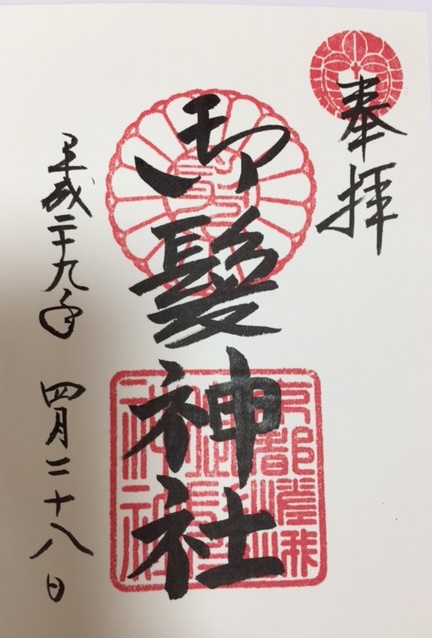 奉拝
御髪神社
京都嵯峨
御髪
神社
平成二十九年 四月二十八日